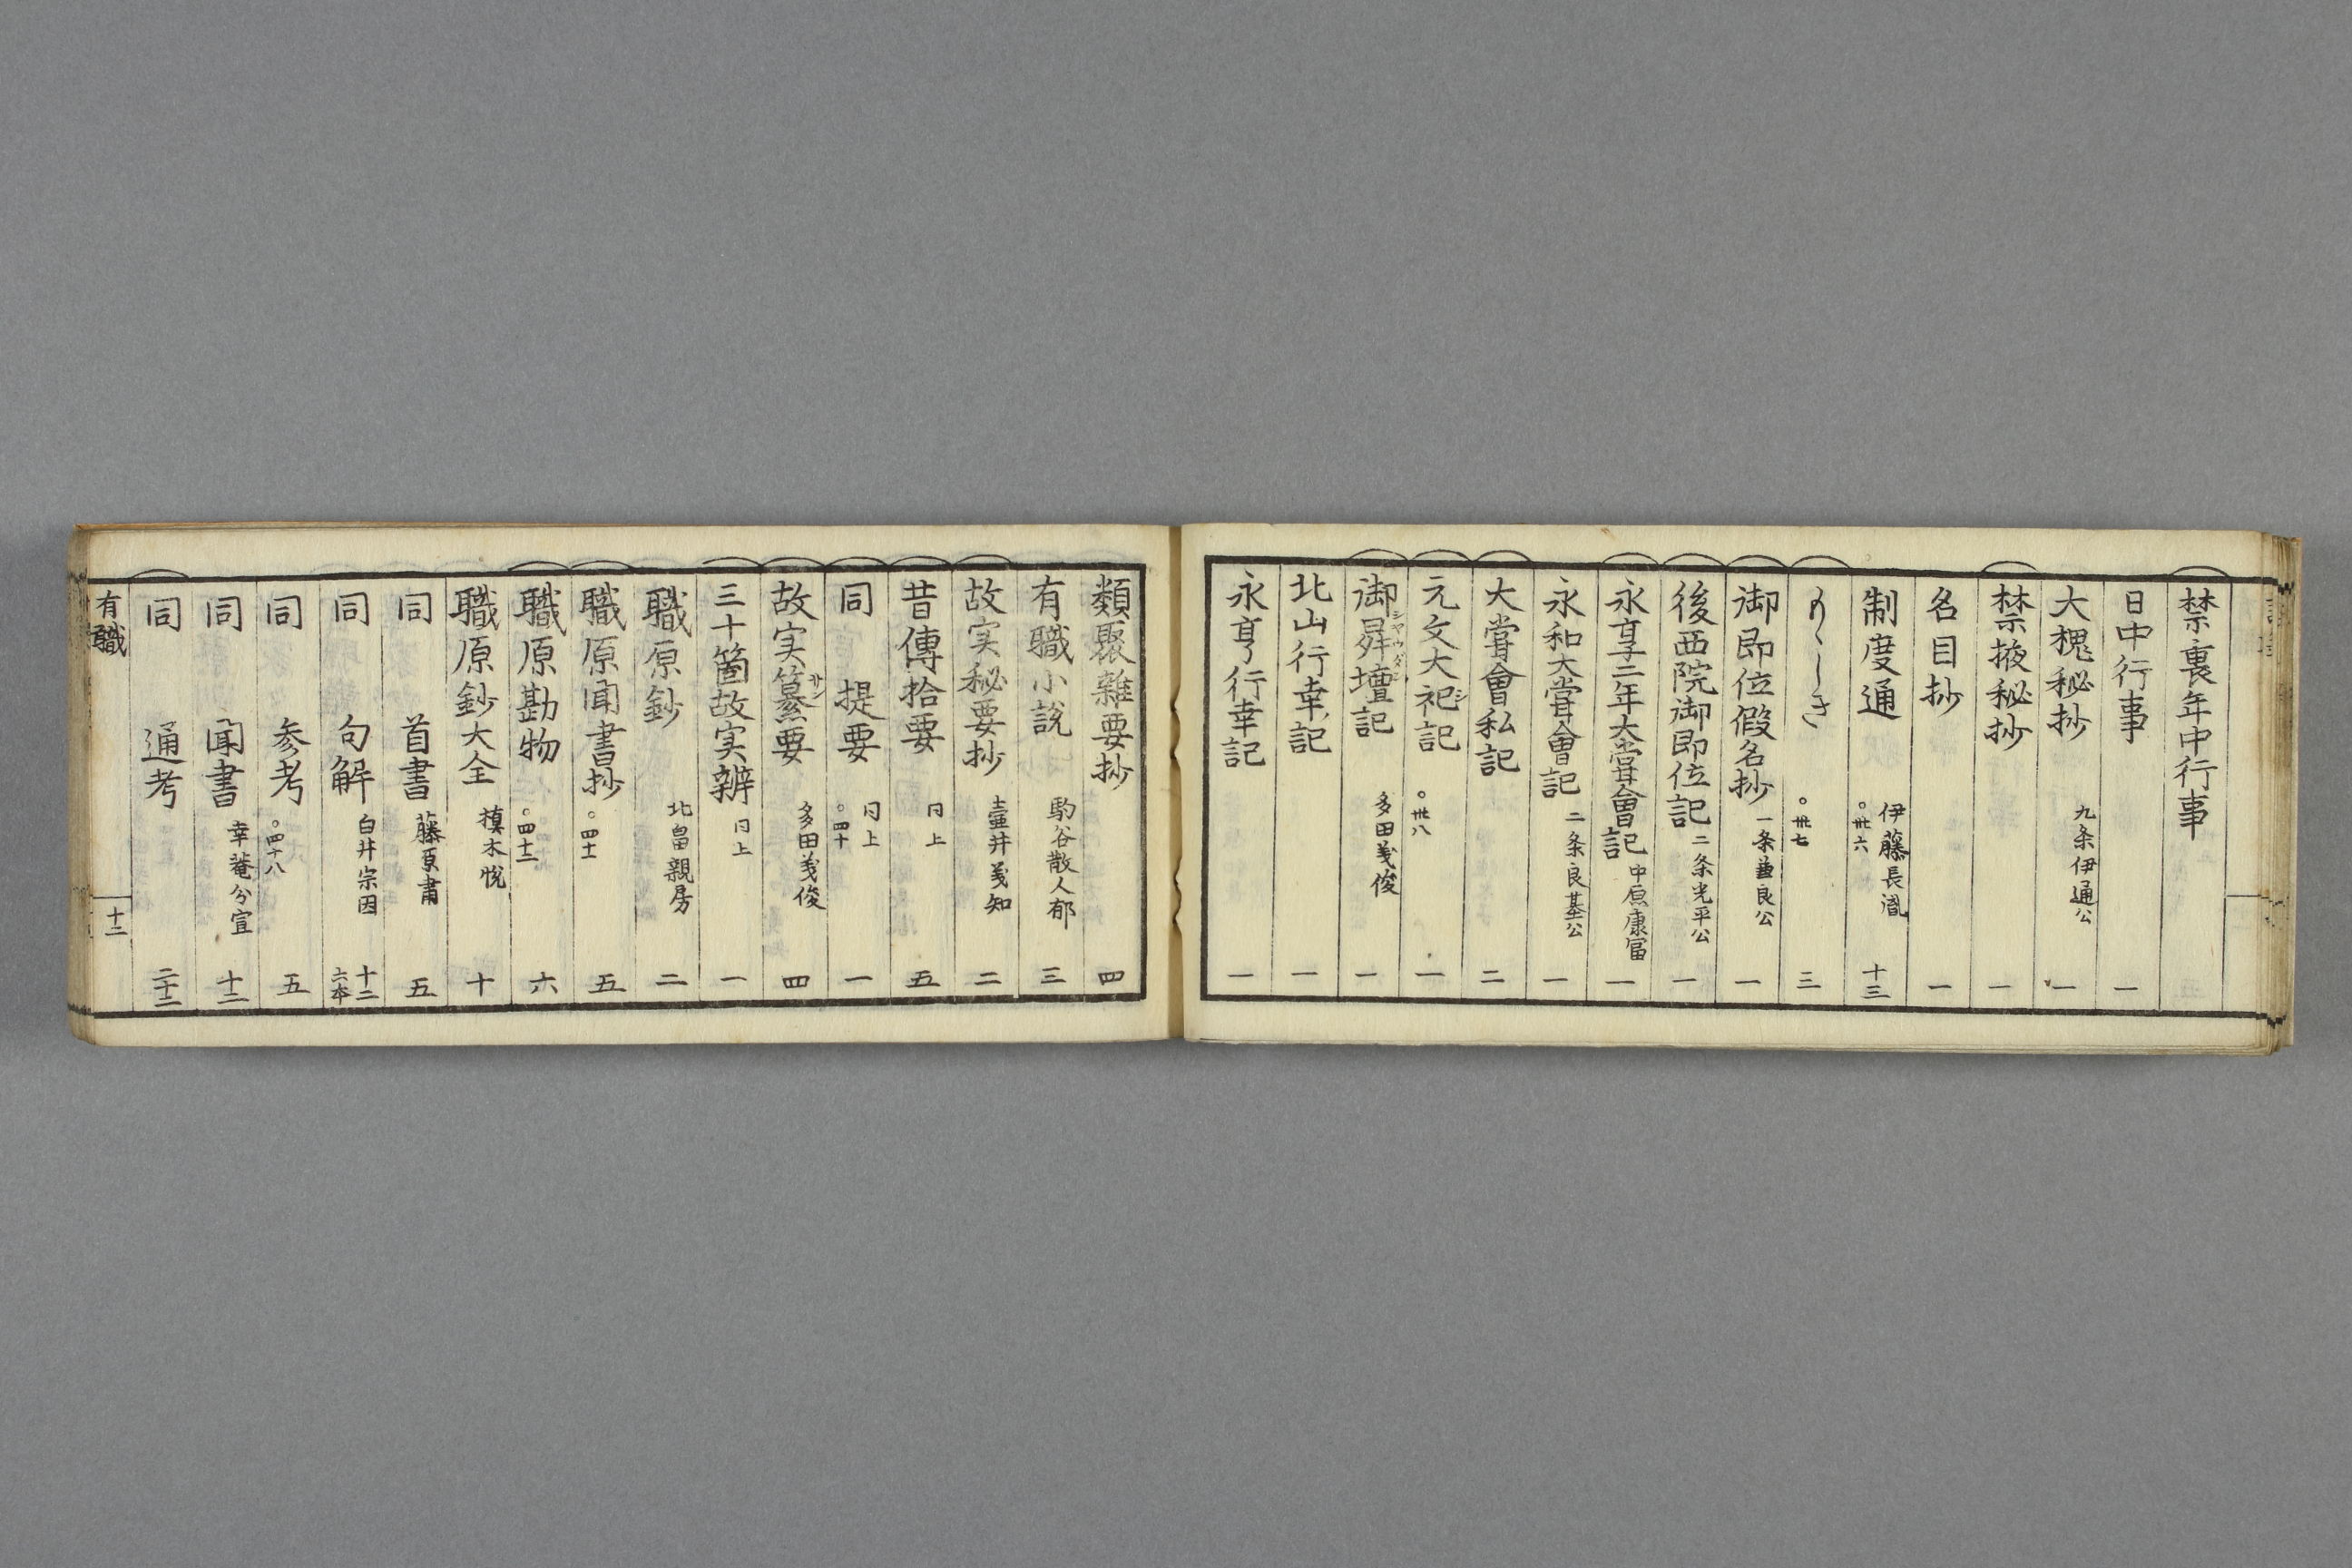 禁裏年中行事
日中行事 一
大槐秘抄 九条伊通公 一
禁掖秘抄 一
名目抄 一
制度通 伊藤長胤 ○卅六 十三
りくしき ○卅七 三
御即位假名抄 一条兼良公 一
後西院御即位記 二条光平公 一
永享二年大嘗會記 中原康冨 一
永和大嘗會記 二条良基公 一
大嘗會私記 二
元文大祀記 シ ○卅八 一
御昇壇記 シヤウダン 多田義俊 一
北山行幸記 一
永享行幸記 一
類聚雜要抄 四
有職小説 駒谷散人郁 三
故実秘要抄 壷井義知 二
昔傳拾要 同上 五
同 提要 同上 ○四十 一
故実纂要 サン 多田義俊 四
三十箇故実辨 同上 一
職原鈔 北畠親房 二
職原聞書抄 ○四十一 五
職原勘物 ○四十二 六
職原鈔大全 植木悦 十
同 首書 藤原肅 五
同 句解 白井宗因 十二 六本
同 参考 ○四十八 五
同 聞書 幸菴分宣 十二
同 通考 二十二
有職 十二